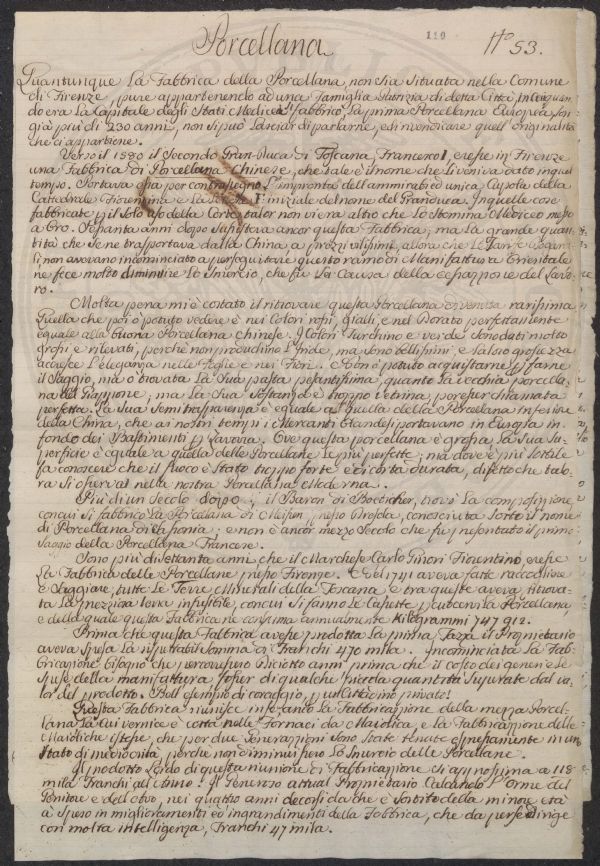 110
Porcellana
N.o 53.
Quantunque La Fabbrica della Porcellana, non sia Situata nella Comune
di Firenze, pure appartenendo ad una Famiglia Patrizia di detta Città, in cui quan-
do era La Capitale degli Stati Medicei si fabbricò, La prima Porcellana Europea, son
già più di 230 anni, non si può Lasciar di parlarne, ed rivendicare quell'originalità
che ci appartiene.
Verso il 1580 il Secondo Gran-Duca di Toscana, Francesco I, eresse in Firenze
una Fabbrica di Porcellana Chinese, che tale è il nome che Li veniva dato in quel
tempo. Portava essa per contrassegno L'impronta dell'ammirabil ed unica Cupola della
Cattedrale Fiorentina e La F iniziale del nome del Granduca. In quelle cose
fabbricate p il Solo uso della Corte talor non vi era altro che Lo Stemma Mediceo messo
a Oro. Sessanta anni dopo Sussisteva ancor questa Fabbrica; ma La grande quan-
tità che Se ne trasportava dalla China a prezzi vilissimi, allora che Le
li, non avevano incominciato a perseguitare questo ramo di Manifattura Orientale
ne fece molto diminuire Lo Smercio, che fù La Causa della cessazione del Lavo-
ro.
Molta pena mi è costato il ritrovare questa Porcellana divenuta rarissima
Quella che poi ò potuto vedere è nei Colori rossi, Gialli, e nel Dorato perfettamente
eguale alla buona Porcellana Chinese. I Colori Turchino e verde Sono dati molto
grossi e rilevati, perche non producono L'Iride, ma sono bellissimi, e La loro grossezza
accresce L'eleganza nelle Foglie e nei Fiori. Non ò potuto acquistarne p farne
il Saggio, ma ò trovata La Sua pasta pesantissima, quanto La vecchia porcella-
na del Giappone, ma La Sua Sostanza è troppo vetrina, p esser chiamata
perfetta. La Sua Semitrasparenza è eguale a quella della Porcellana Inferiore
della China, che ai nostri tempi i Mercanti Olandesi portavano in Europa in
fondo dei Bastimenti p Zavorra. Ove questa porcellana è grossa La Sua Su-
perficie è eguale a quella delle Porcellane Le più perfette; ma dove è più Sottile
fa conoscere che il fuoco è Stato troppo forte e di corta durata, difetto che talo-
ra Si osserva nella nostra Porcellana Moderna.
Più di un Secolo dopo, il Baron di Botticher, trovò La composizione
con cui Si fabbrica La Porcellana di Meissen, presso Dresda, conosciuta Sotto il nome
di Porcellana di Sassonia: e non è ancor mezzo Secolo che fu presentato il primo
Saggio della Porcellana Francese.
Sono più di Settanta anni che il Marchese Carlo Ginori Fiorentino, eresse
La Fabbrica delle Porcellane presso Firenze. Nel 1741 aveva fatte raccogliere
e Saggiare, tutte Le Terre Minerali della Toscana, e tra queste aveva ritrova-
ta La preziosa terra infusibile, con cui Si fanno Le Casette, p cuocer La Porcellana,
e della quale questa Fabbrica ne consuma annualmente Kilogrammi 747912.
Prima che questa Fabbrica avesse prodotta La prima Tazza il Proprietario
aveva Spesa La rispettabil Somma di Franchi 470 mila. Incominciata La Fab-
bricazione bisognò che percorressero diciotto anni prima che il costo dei generi e Le
Spese della manifattura fosser di qualche piccola quantità Superate dal va-
lor del prodotto. Bell'esempio di coraggio, p un Cittadino privato!
Questa Fabbrica riunisce in se ancor La Fabbricazione della mezza Porcel-
lana La cui vernice è cotta nelle Fornaci da Maiolica, e La Fabbricazione delle
Maioliche istesse, che per due Generazioni Sono State tenute espressamente in uno
Stato di mediocrità, perche non diminuissero Lo Smercio delle Porcellane.
Il prodotto Lordo di questa riunione di Fabbricazione Si approssima a 118
mila Franchi all'Anno. Il Penenzo attual Proprietario Calcando L'Orme del
Genitore e dell'Avo, nei quattro anni decorsi da che è Sortito della minore età
à Speso in miglioramenti ed ingrandimenti della Fabbrica, che da per se dirige
con molta intelligenza, Franchi 47 mila.